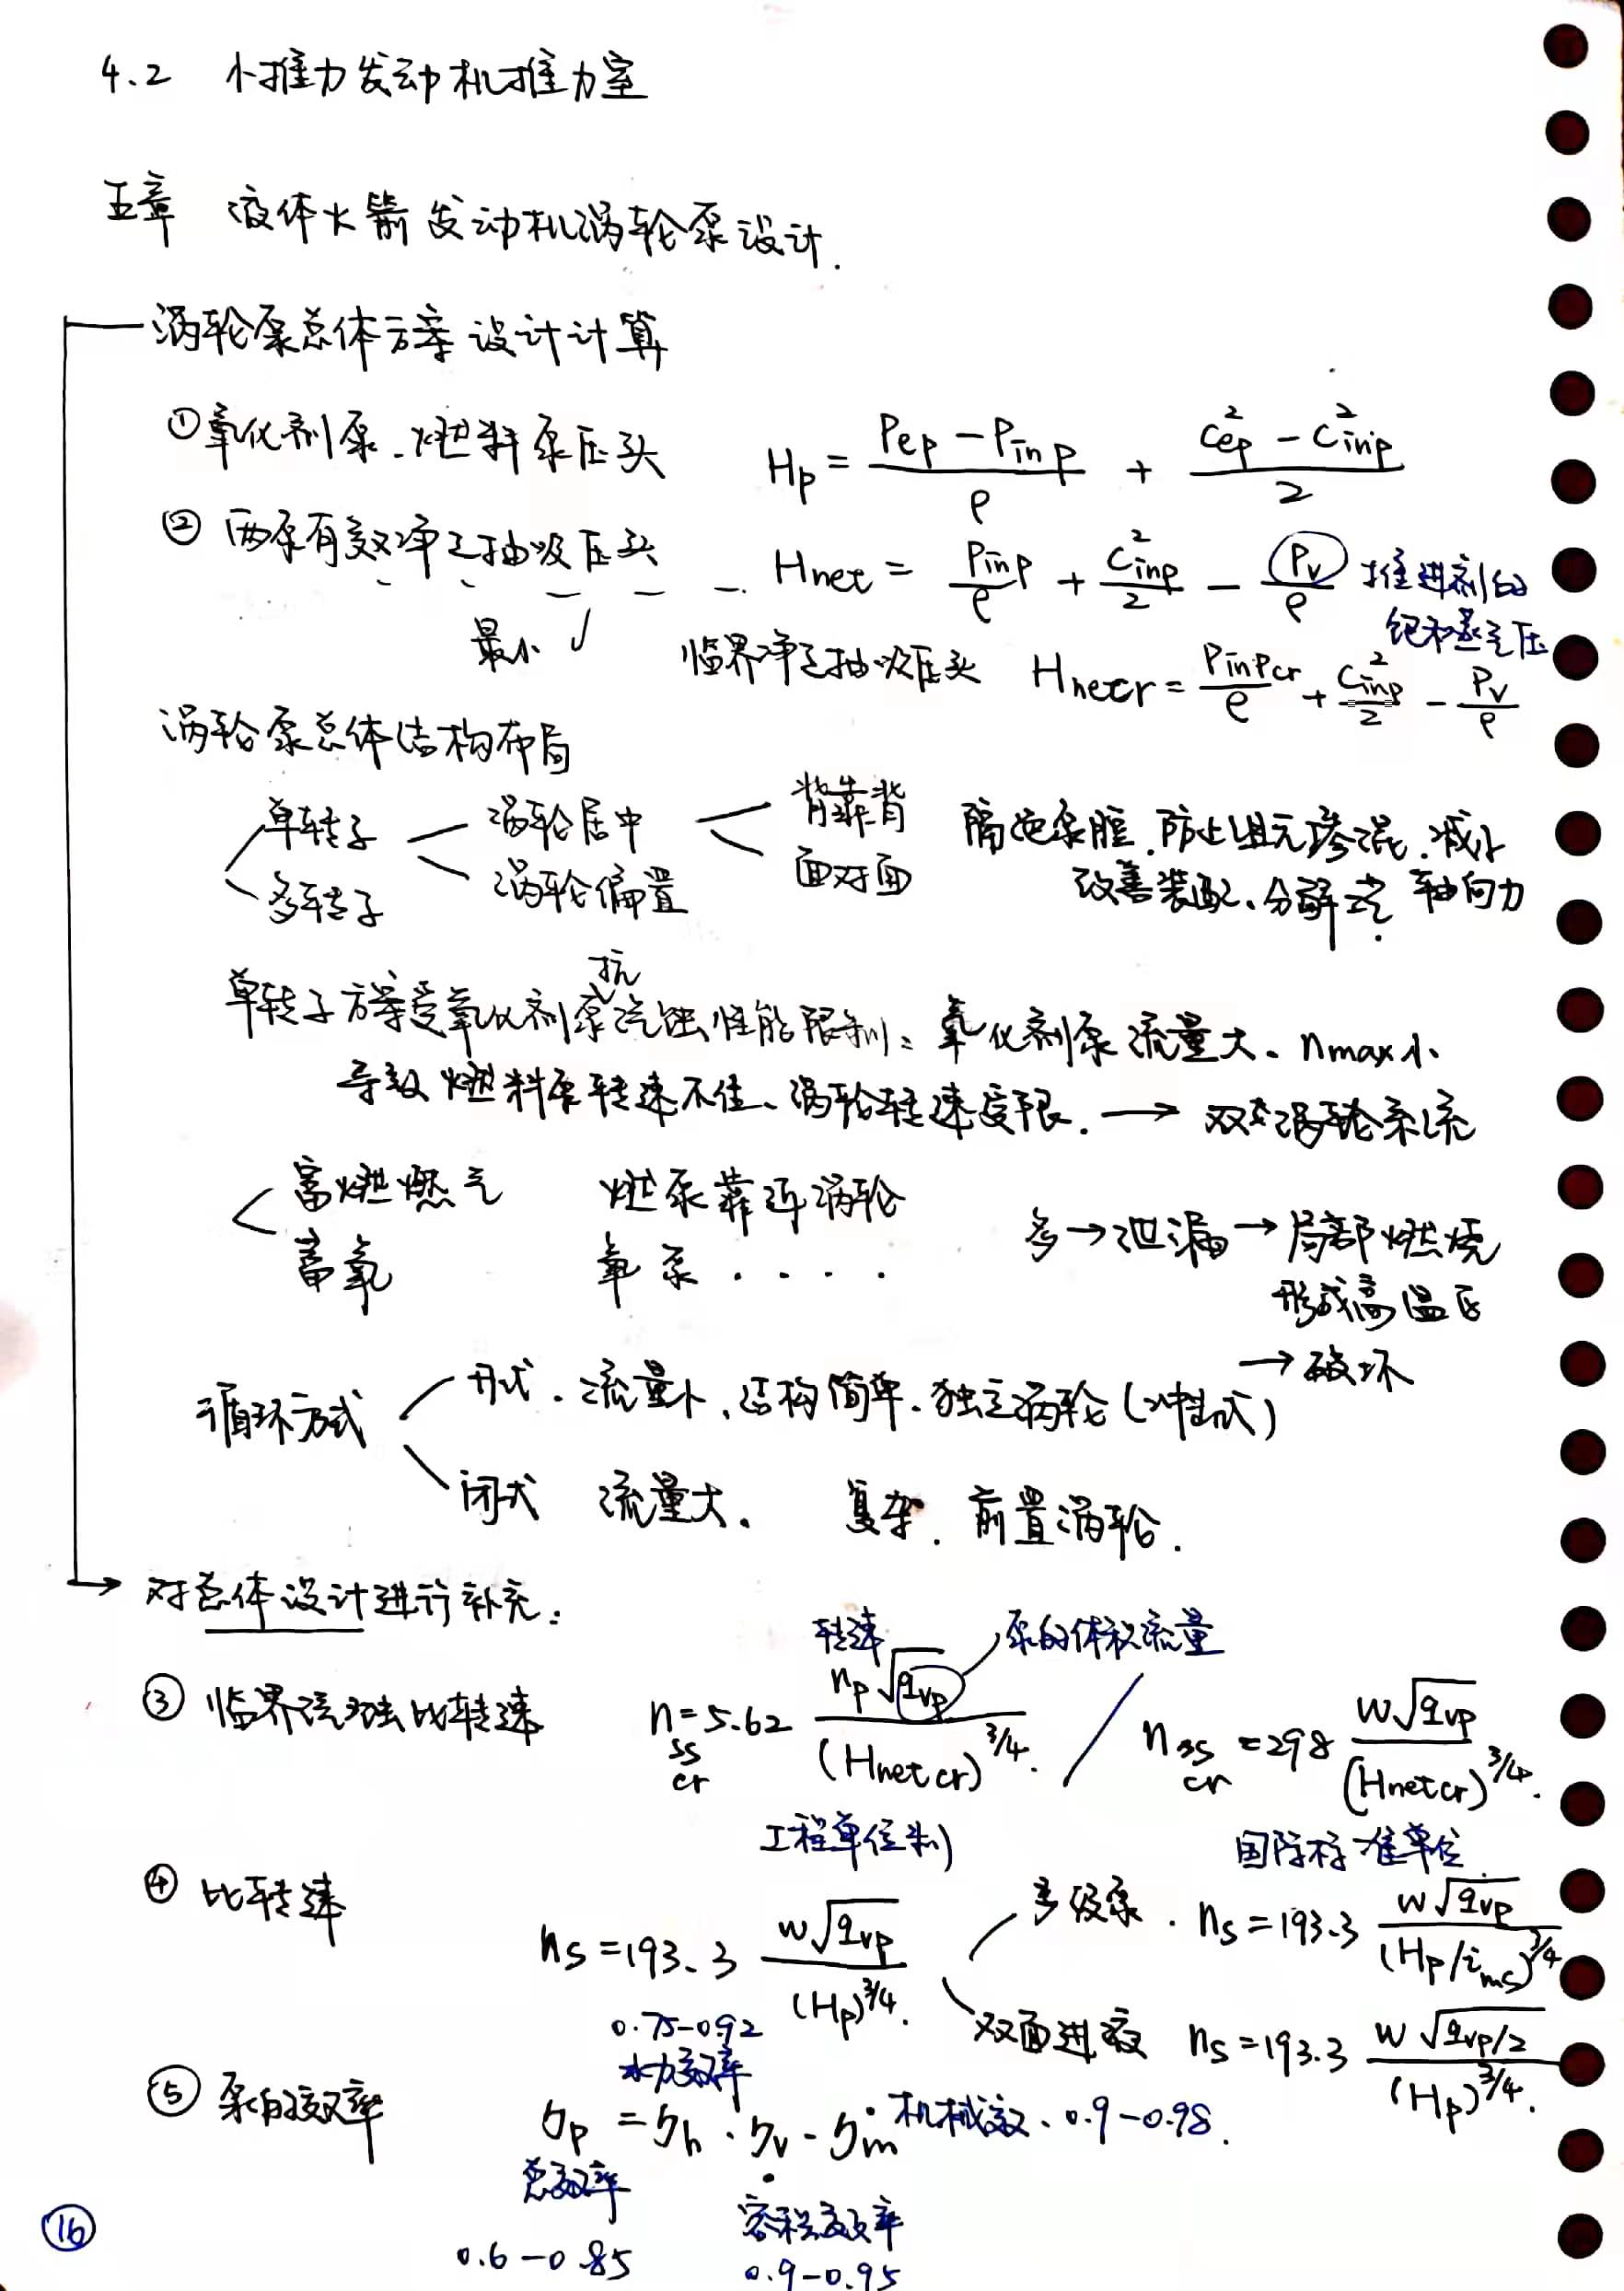 4.2 小推力发动机推力室
五章 液体火箭发动机涡轮泵设计.
涡轮泵总体方案设计计算
①氧化剂泵.燃料泵压头 Hp = (Pep - Pinp)/ρ + (c²ep - c²inp)/2
② 两泵有效净正抽吸压头 Hnet = Pinp/ρ + c²inp/2 - Pv/ρ 推进剂的
饱和蒸气压
最小 √ 临界净正抽吸压头 Hnetcr = Pinpcr/ρ + c²inp/2 - Pv/ρ
涡轮泵总体结构布局
单转子 涡轮居中 背靠背 隔绝泵腔.防止组元渗混.减小
多转子 涡轮偏置 面对面 改善装配、分解工艺. 轴向力
单转子方案受氧化剂泵抗汽蚀性能限制: 氧化剂泵流量大. nmax小
导致燃料泵转速不佳、涡轮转速受限. → 双涡轮系统
富燃燃气 燃泵靠近涡轮
富氧 氧泵 . . . . 多→泄漏→局部燃烧
形成高温区
→破坏
循环方式
开式. 流量小,结构简单.独立涡轮(冲击式)
闭式 流量大. 复杂. 前置涡轮.
→ 对总体设计进行补充:
转速 泵的体积流量
③ 临界汽蚀比转速 nsscr = 5.62 np√qvp/(Hnetcr)^3/4. / nsscr = 298 w√qvp/(Hnetcr)^3/4.
工程单位制 国际标准单位
④ 比转速 ns = 193.3 w√qvp/(Hp)^3/4.
多级泵. ns = 193.3 w√qvp/(Hp/ims)^3/4
双面进液 ns = 193.3 w√qvp/2/(Hp)^3/4.
0.75-0.92
水力效率
⑤ 泵的效率 ηp = ηh · ηv · ηm 机械效、0.9-0.98.
总效率 容积效率
0.6-0.85 0.9-0.95
16